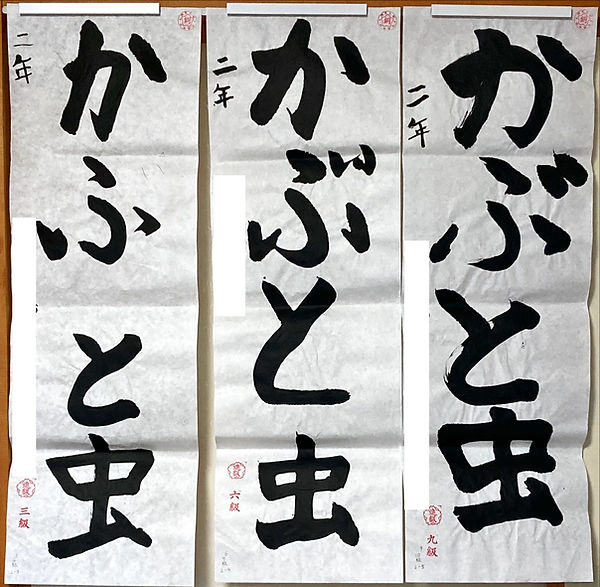 かぶと虫
二年
九級
かぶと虫
二年
六級
かふと虫
二年
三級